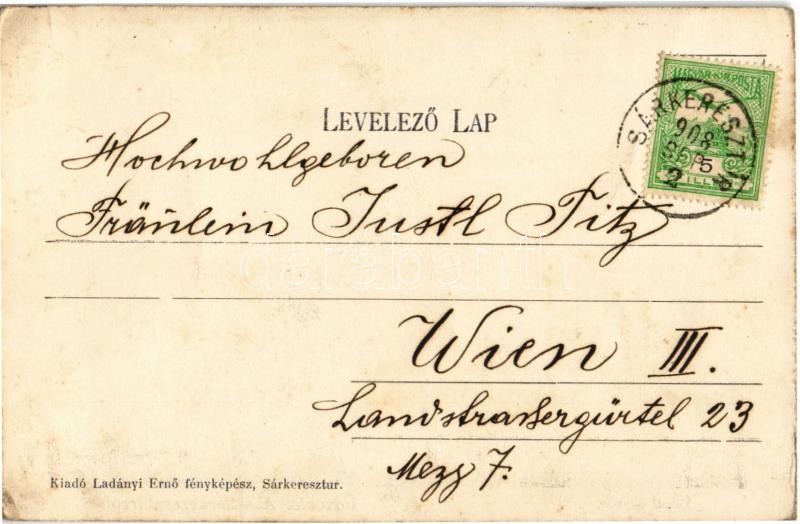 LEVELEZŐ LAP
MAGYAR KIR. POSTA
SÁRKERESZTUR
908
SEP
2
5
Hochwohlgeboren
Fräulein Justl Titz
darabanth
Wien III.
Landstrassergürtel 23
Mezz 7.
Kiadó Ladányi Ernő fényképész, Sárkeresztur.